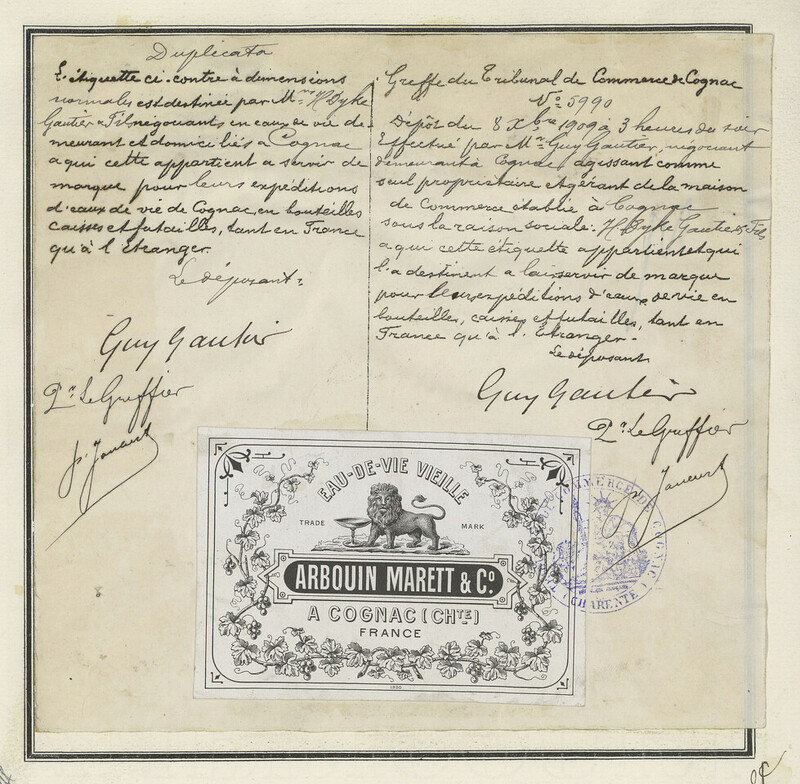 Duplicata
L'étiquette ci-contre à dimensions
normales est destinée par Mrs H Dyke
Gautier & Fils négociants en eaux de vie de-
meurant et domiciliés à Cognac
a qui cette appartient a servir de
marque pour leurs expéditions
d'eaux de vie de Cognac, en bouteilles
caisses et futailles, tant en France
qu'à l'étranger.
Le déposant:
Guy Gautier
Pr Le Greffier
Greffe du Tribunal de Commerce de Cognac
No 5990
Dépôt du 8 Xbre 1909 à 3 heures du soir
Effectué par Mr Guy Gautier, négociant
demeurant à Cognac agissant comme
seul propriétaire et gérant de la maison
de Commerce établie à Cognac
sous la raison sociale: H Dyke Gautier & Fils
a qui cette étiquette appartient et qui
l'a destinent a leur servir de marque
pour leurs expéditions d'eaux de vie en
bouteilles, caisses et futailles, tant en
France qu'à l'Etranger-
Le déposant
Guy Gautier
Pr Le Greffier
EAU-DE-VIE VIEILLE
TRADE MARK
ARBOUIN MARETT & Co
A COGNAC (CHTE)
FRANCE
COMMERCE DE COGNAC
(CHARENTE)